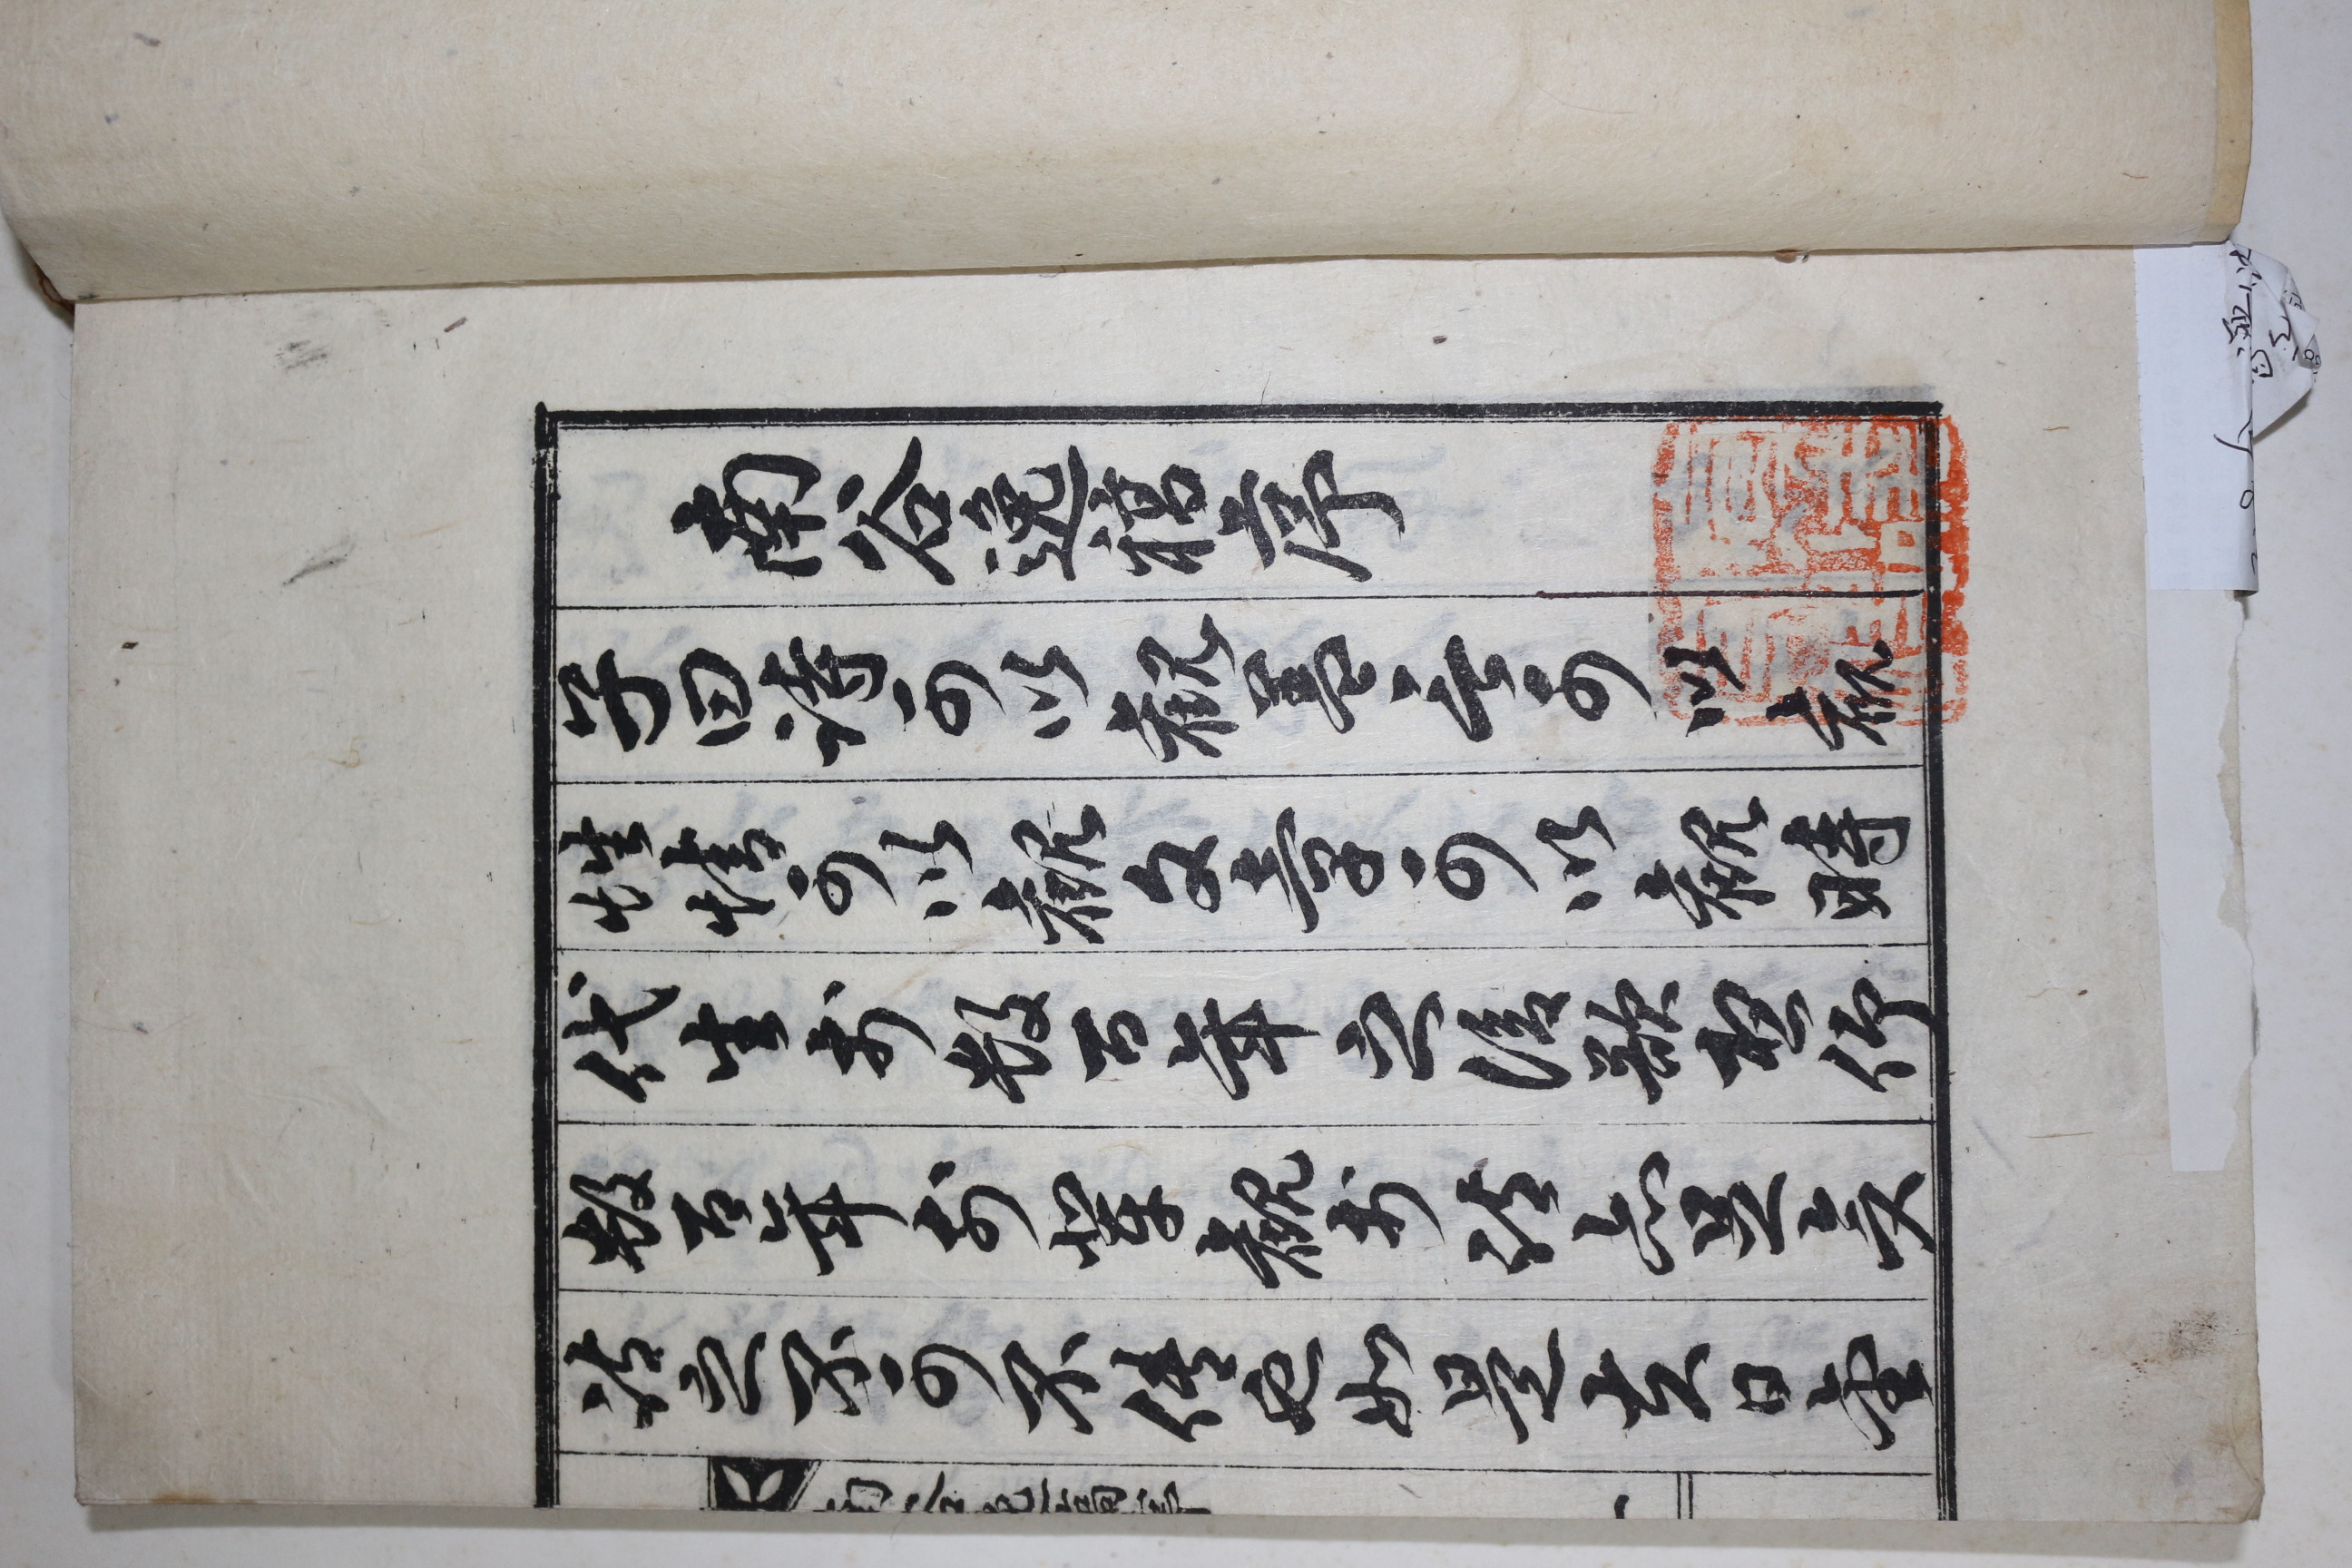 南谷逸稿序
子曰詩可以觀蓋言可以觀
性情可以觀文章可以觀時
代生於數百年之後欲想仰
數百年前輩觀於詩亦足矣
詩之不可不傳也如是夫日金
南谷逸稿序